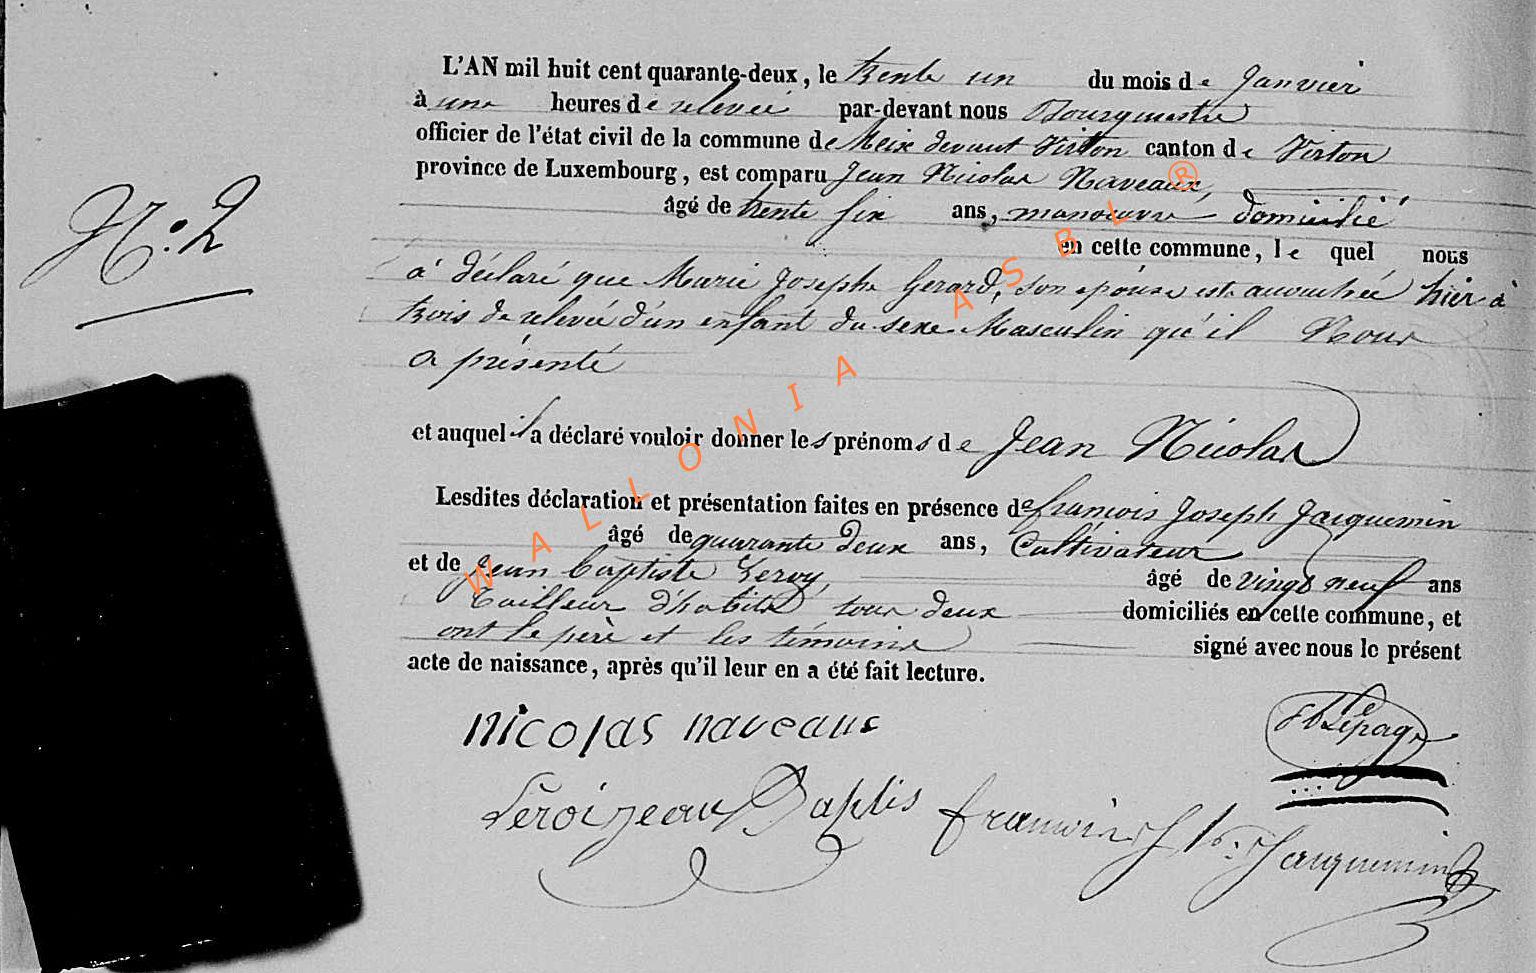 L'AN mil huit cent quarante-deux, le trente un du mois de Janvier
à une heures de relevée par-devant nous Bourgmestre
officier de l'état civil de la commune de Meix devant Virton canton de Virton
province de Luxembourg, est comparu Jean Nicolas Naveaux,
âgé de trente six ans, manoeuvre domicilié
en cette commune, le quel nous
à déclaré que Marie Josephe Gerard, son épouse est accouchée hier à
trois de relevée d'un enfant du sexe Masculin qu'il Nous
a présenté
et auquel il a déclaré vouloir donner les prénoms de Jean Nicolas
Lesdites déclaration et présentation faites en présence de françois Joseph Jacquemin
âgé de quarante deux ans, Cultivateur
et de Jean baptiste Leroy, âgé de vingt neuf ans
Tailleur d'habits tous deux domiciliés en cette commune, et
ont le père et les témoins signé avec nous le présent
acte de naissance, après qu'il leur en a été fait lecture.
N.o 2
nicolas naveaux
Lepage
Leroi jean Baptis françois Jh Jacquemin
WALLONIA ASBL ®